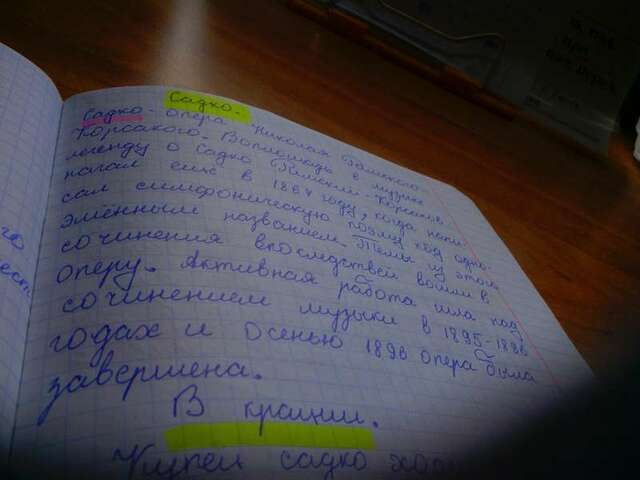 Садко.
Садко - опера Николая Римского-
Корсакого. Воплощать в музыке
легенду о Садко Римский-Корсаков
начал ещё в 1867 году, когда напи-
сал симфоническую поэму под одно-
имённым названием. Темы из этого
сочинения впоследствей вошли в
оперу. Активная работа шла над
сочинением музыки в 1895-1896
годах и осенью 1896 опера была
завершена.
В крации.
Купец садко